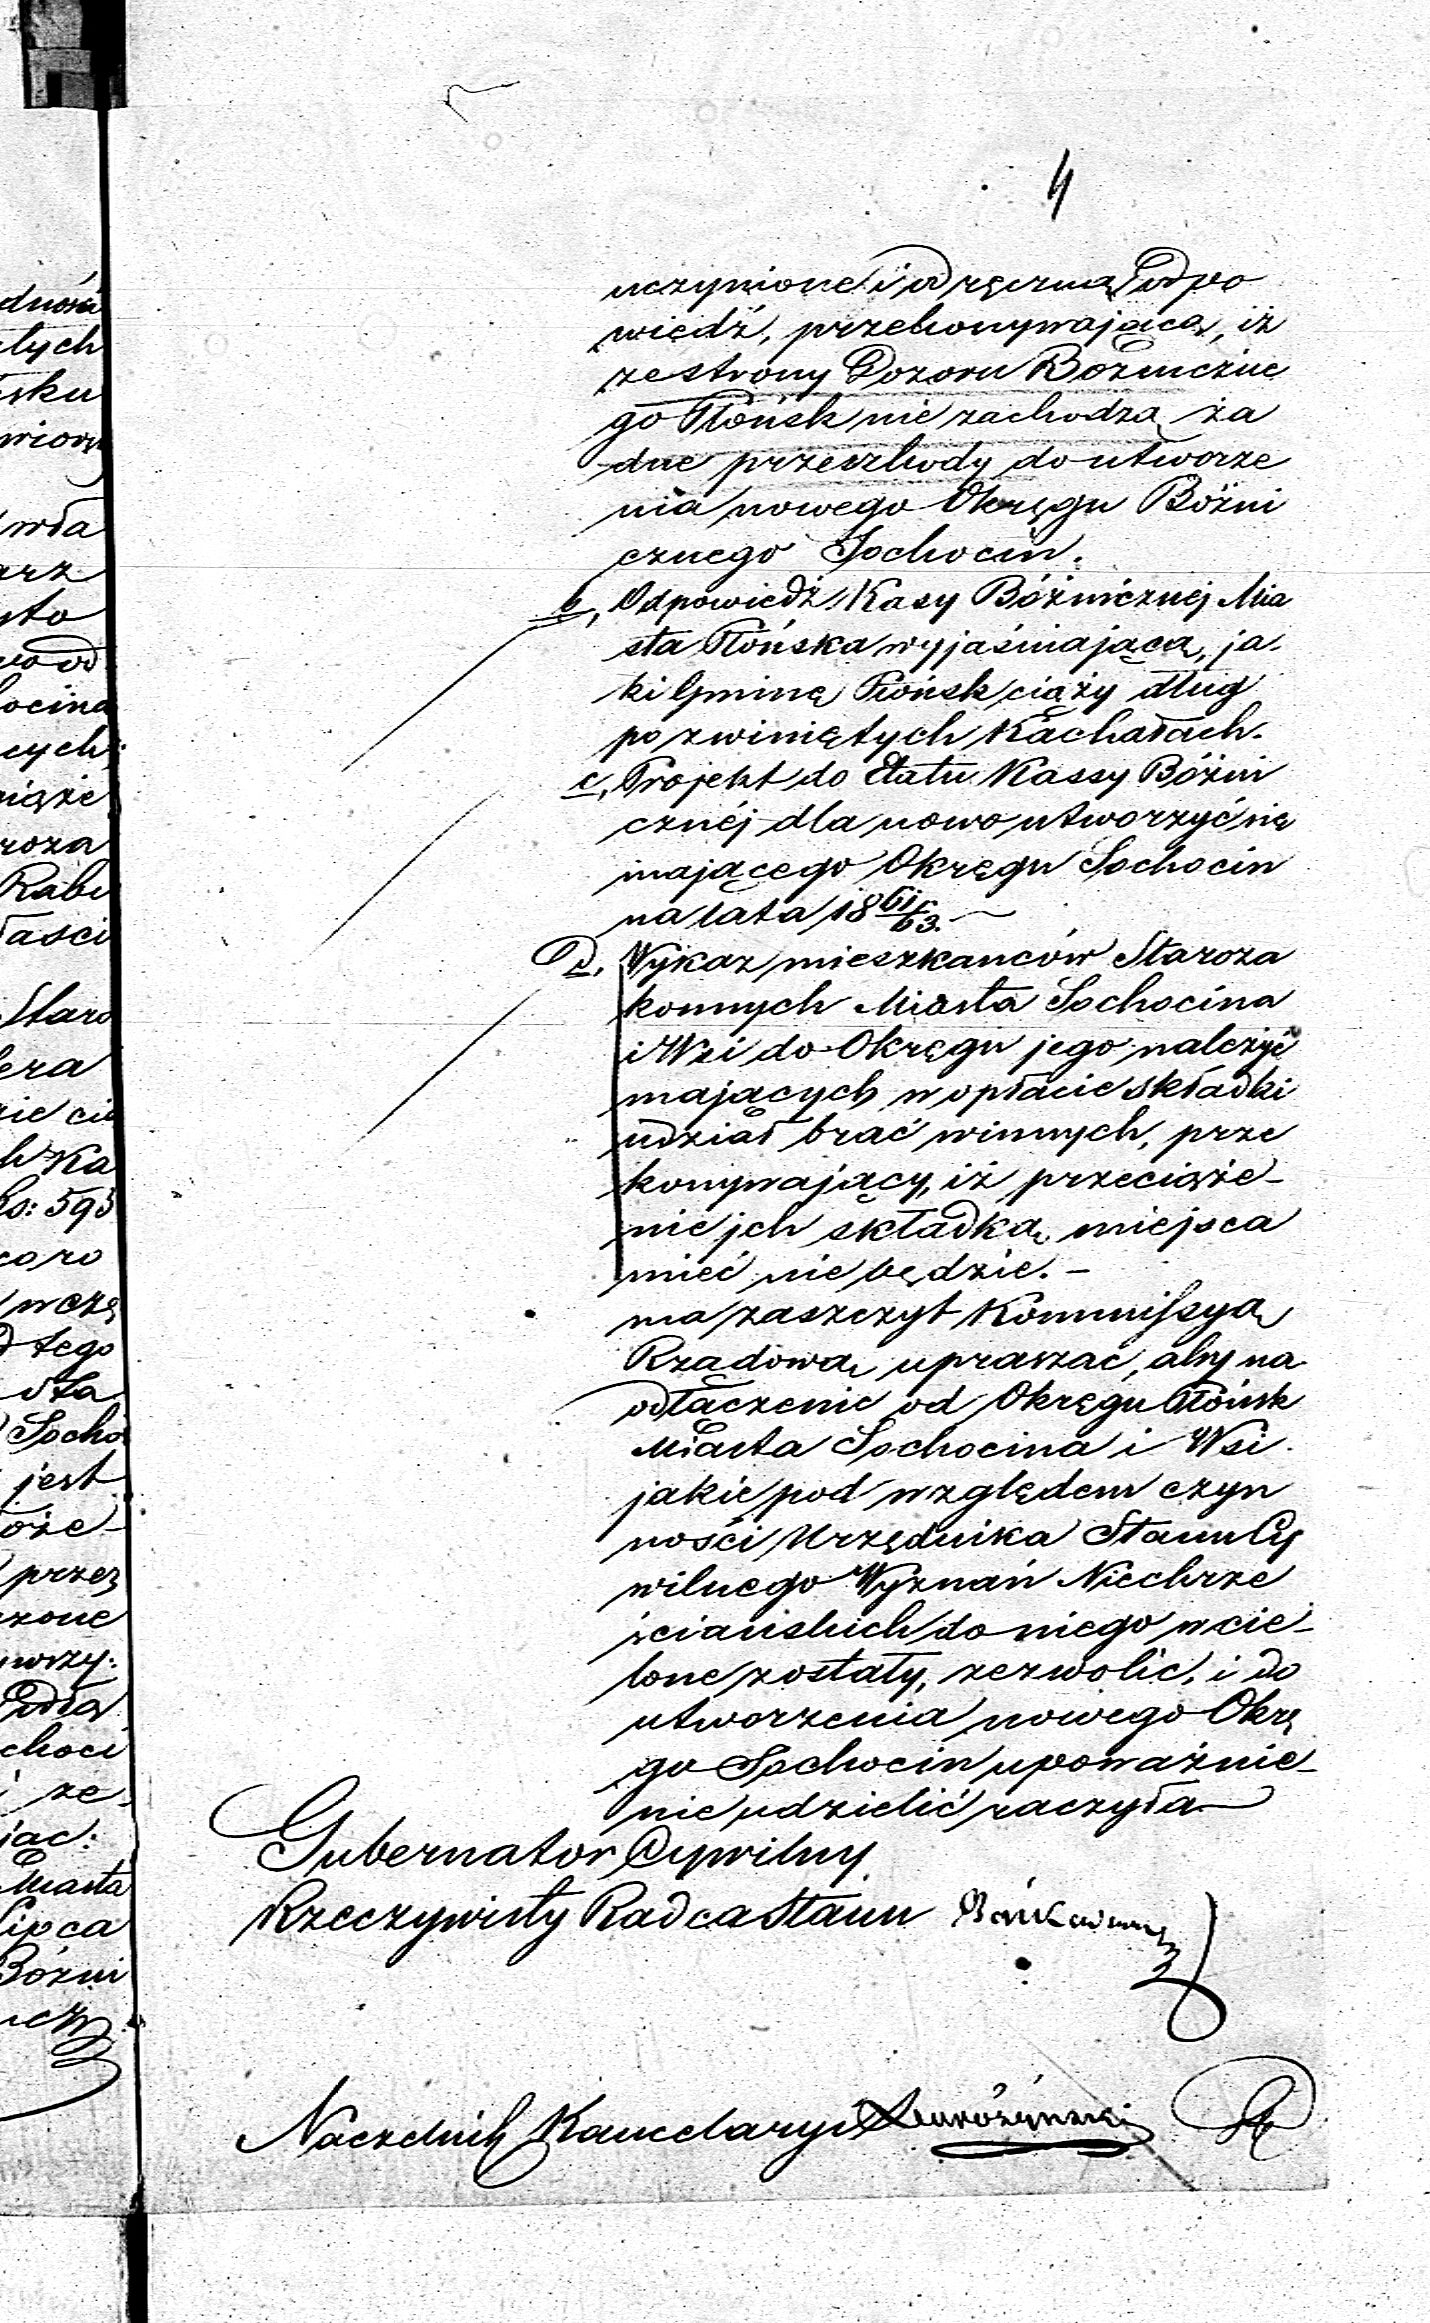 4
uczynione i odręczną Odpo
wiedź, przekonywającą, iż
ze strony Dozoru Bożniczne
go Płońsk nie zachodzą ża
dne przeszkody do utworze
nia nowego Okręgu Bóżni
cznego Sochocin.
b, Odpowiedź Kasy Bóżnicznej Mia
sta Płońska wyjaśniającą, ja-
ki Gminę Płońsk ciąży dług
po zwiniętych Kachałach.
c, Projekt do Etatu Kassy Bóżni
cznéj dla nowo utworzyć się
mającego Okręgu Sochocin
na lata 1861/63.
D, Wykaz mieszkańców Staroza
konnych Miasta Sochocina
i Wsi do Okręgu jego należyć
mających w opłacie składki
udział brać winnych, prze
konywający, iż przeciąże-
nie jch składką miejsca
mieć nie będzie.-
ma zaszczyt Kommissyą
Rządową upraszać, aby na
odłączenie od Okręgu Płońsk
Miasta Sochocina i Wsi
jakie pod względem czyn
ności Urzędnika Stanu Cy
wilnego Wyznań Niechrze
ściańskich do niego wcie-
lone zostały, zezwolić, i do
utworzenia nowego Okrę
go Sochocin upoważnie-
nie udzielić raczyła
Gubernator Cywilny
Rzeczywisty Radca Stanu
Naczelnik Kancelaryi
dności
łych
wła
arz
sto
ocina
cych
roza
Rabi
Staro
No: 595
tego
dla
Socho
jest
przez
zone
choci
ze
Miasta
Lipca
Bóżni